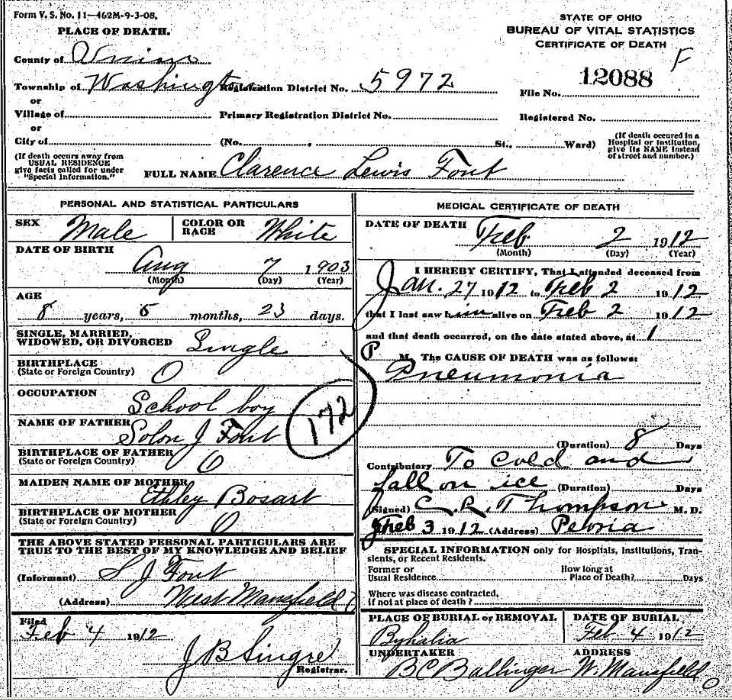 Form V. S. No. 11—462M-9-3-08.
PLACE OF DEATH.
STATE OF OHIO
BUREAU OF VITAL STATISTICS
CERTIFICATE OF DEATH
F
County of Union
Township of Washington Registration District No. 5972
File No. 12088
or
Village of Primary Registration District No. Registered No.
or
City of (No. , St., Ward)
(If death occured in a Hospital or Institution, give its NAME instead of street and number.)
(If death occurs away from USUAL RESIDENCE give facts called for under "Special Information.")
FULL NAME Clarence Lewis Font
PERSONAL AND STATISTICAL PARTICULARS
SEX Male COLOR OR RACE White
DATE OF BIRTH
Aug 7 1903
(Month) (Day) (Year)
AGE
8 years, 5 months, 23 days.
SINGLE, MARRIED,
WIDOWED, OR DIVORCED Single
BIRTHPLACE
(State or Foreign Country) O
OCCUPATION
School boy
NAME OF FATHER
Solon J Font
BIRTHPLACE OF FATHER
(State or Foreign Country) O
MAIDEN NAME OF MOTHER
Ethley Bosart
BIRTHPLACE OF MOTHER
(State or Foreign Country) O
172
THE ABOVE STATED PERSONAL PARTICULARS ARE
TRUE TO THE BEST OF MY KNOWLEDGE AND BELIEF
(Informant) S J Font
(Address) West Mansfield O
Filed
Feb 4 1912
J B Singre
Registrar.
MEDICAL CERTIFICATE OF DEATH
DATE OF DEATH
Feb 2 1912
(Month) (Day) (Year)
I HEREBY CERTIFY, That I attended deceased from
Jan. 27 1912 to Feb 2 1912
that I last saw him alive on Feb 2 1912
and that death occurred, on the date stated above, at 1
P M. The CAUSE OF DEATH was as follows:
Pneumonia
(Duration) 8 Days
Contributory To Cold and
fall on ice (Duration) Days
(Signed) C. R. Thompson M. D.
Feb 3 1912 (Address) Peloria
SPECIAL INFORMATION only for Hospitals, Institutions, Transients, or Recent Residents.
Former or
Usual Residence
How long at
Place of Death? Days
Where was disease contracted,
if not at place of death?
PLACE OF BURIAL or REMOVAL DATE OF BURIAL
Byhalia Feb 4 1912
UNDERTAKER ADDRESS
B C Ballinger W. Mansfield O